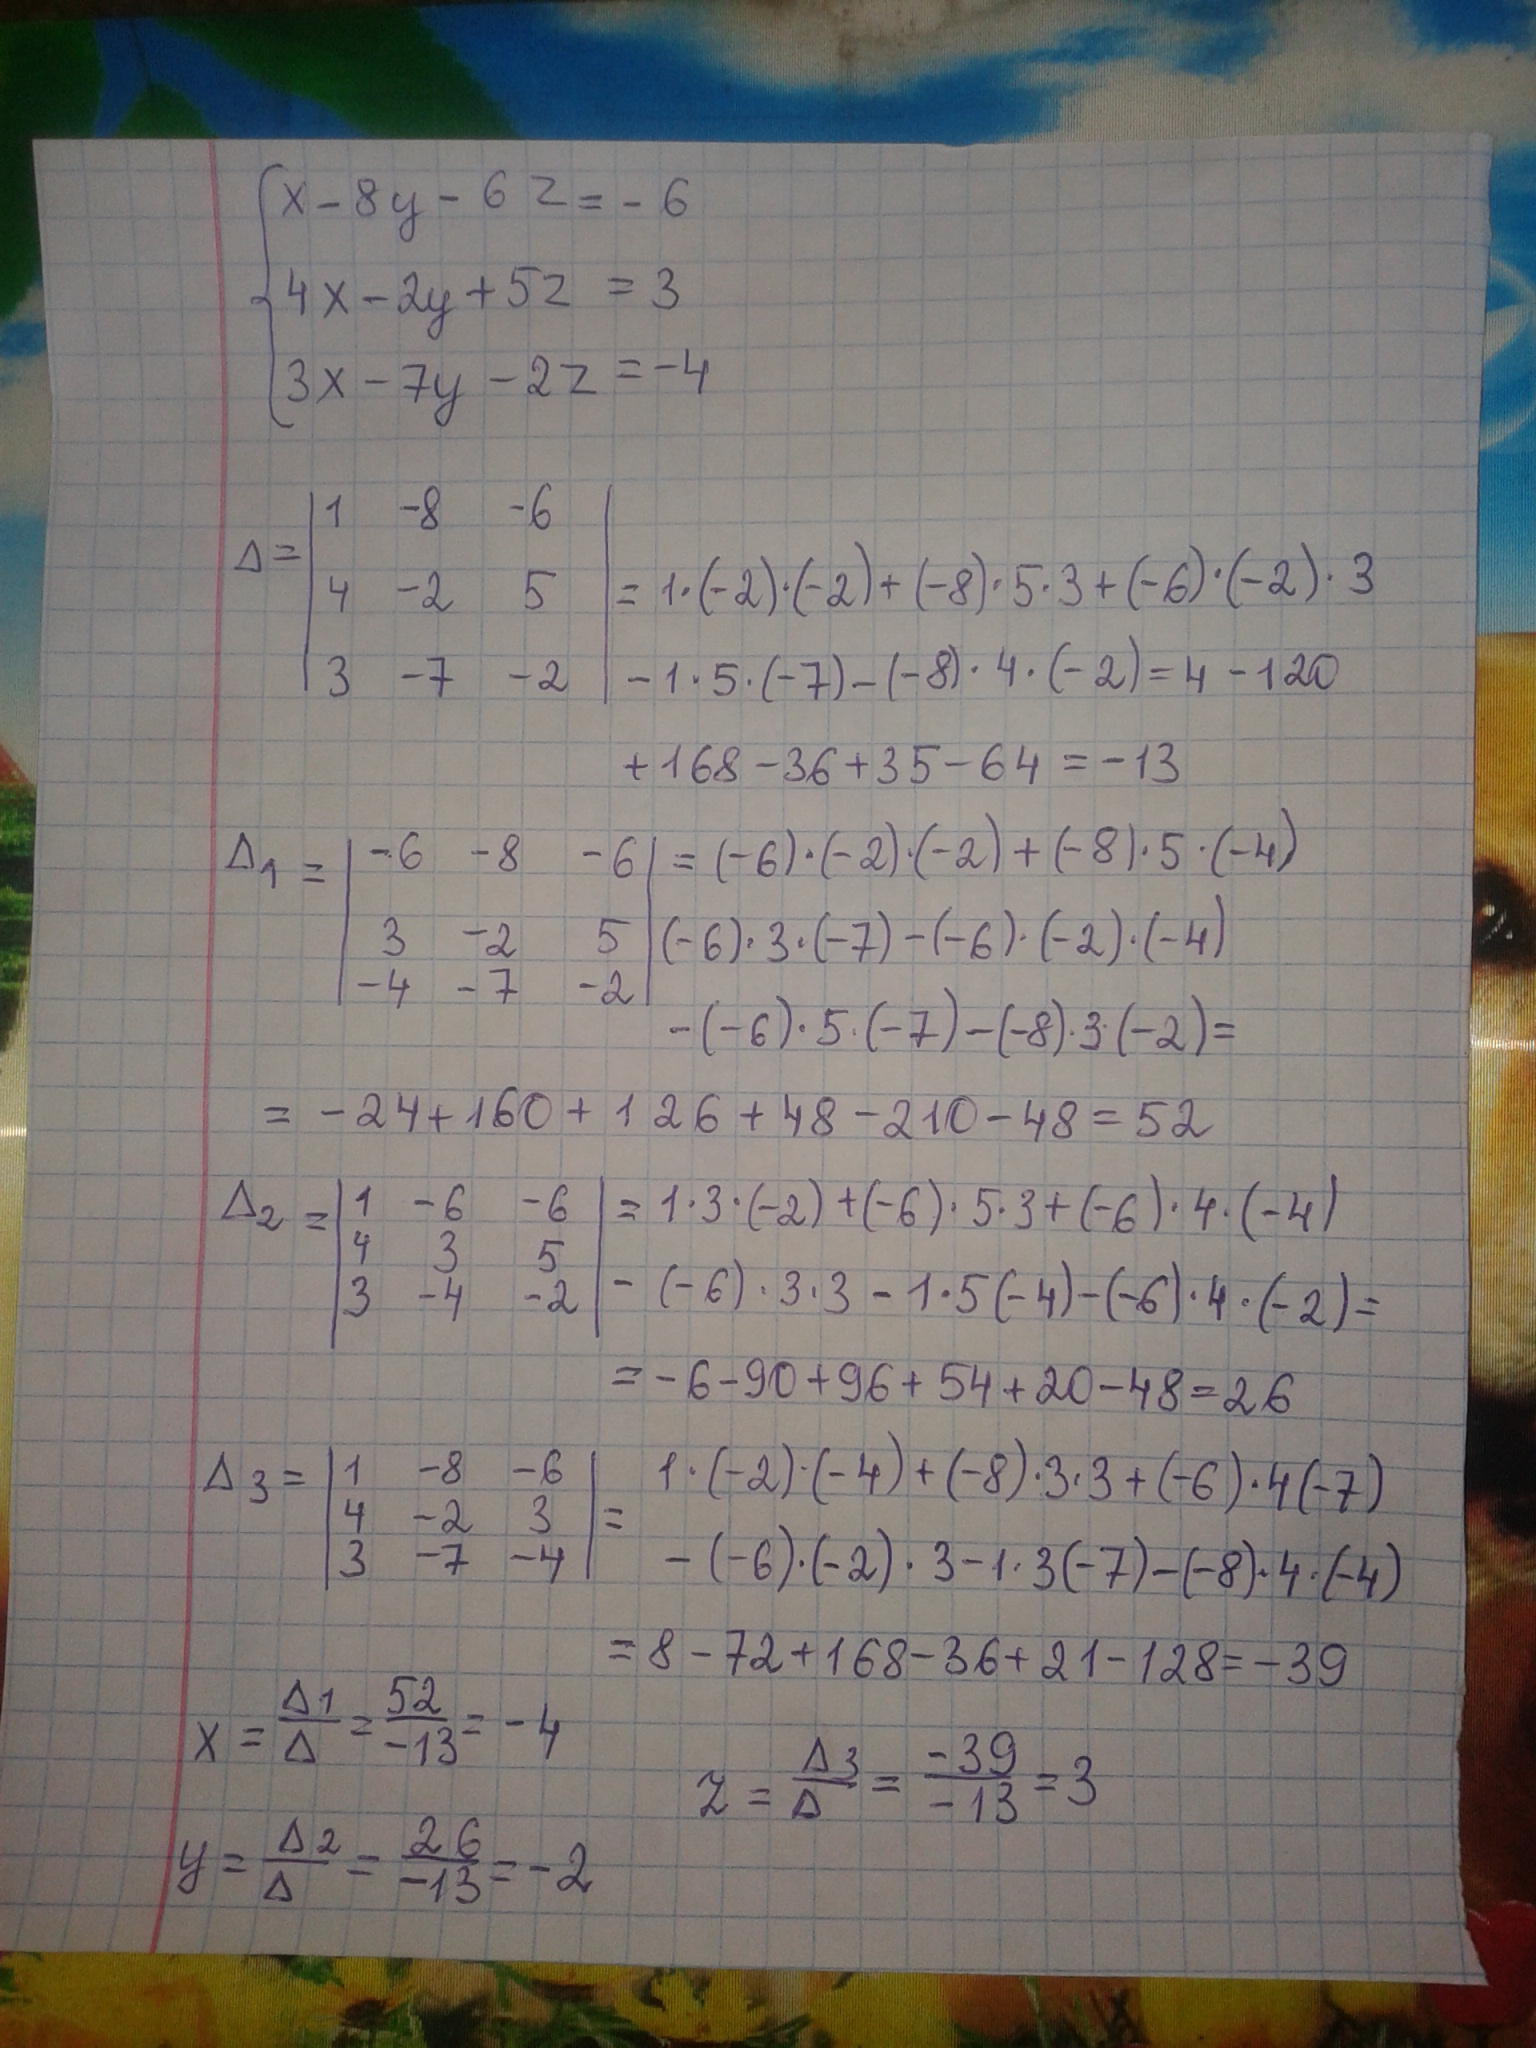 x - 8y - 6z = - 6
4x - 2y + 5z = 3
3x - 7y - 2z = -4
Δ = | 1 -8 -6 |
| 4 -2 5 | = 1·(-2)·(-2) + (-8)·5·3 + (-6)·(-2)·3
| 3 -7 -2 | - 1·5·(-7) - (-8)·4·(-2) = 4 - 120
+ 168 - 36 + 35 - 64 = -13
Δ1 = | -6 -8 -6 | = (-6)·(-2)·(-2) + (-8)·5·(-4)
| 3 -2 5 | (-6)·3·(-7) - (-6)·(-2)·(-4)
| -4 -7 -2 |
- (-6)·5·(-7) - (-8)·3·(-2) =
= - 24 + 160 + 126 + 48 - 210 - 48 = 52
Δ2 = | 1 -6 -6 | = 1·3·(-2) + (-6)·5·3 + (-6)·4·(-4)
| 4 3 5 |
| 3 -4 -2 | - (-6)·3·3 - 1·5(-4) - (-6)·4·(-2) =
= -6 - 90 + 96 + 54 + 20 - 48 = 26
Δ3 = | 1 -8 -6 | 1·(-2)·(-4) + (-8)·3·3 + (-6)·4(-7)
| 4 -2 3 | =
| 3 -7 -4 | - (-6)·(-2)·3 - 1·3(-7) - (-8)·4·(-4)
= 8 - 72 + 168 - 36 + 21 - 128 = -39
x = Δ1/Δ = 52/-13 = -4
z = Δ3/Δ = -39/-13 = 3
y = Δ2/Δ = 26/-13 = -2